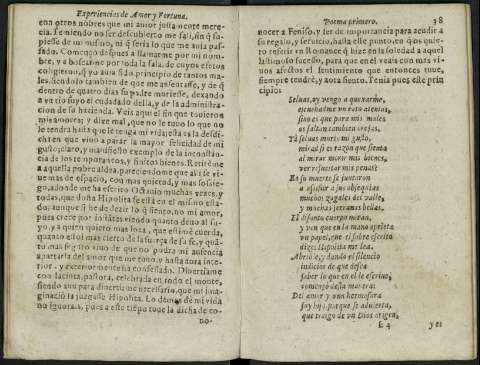 Experiencias de Amor y Fortuna.
con otros nõbres que mi amor justamente mere-
cia. Temiendo no ser descubierto me sali, sin q̃ su-
piesse de mi mismo, ni q̃ seria lo que me auia pas-
sado. Començò despues a llamarme por mi nom-
bre, y a buscarme por toda la sala, de cuyos efetos
coligieron, q̃ yo auia sido principio de tantos ma-
les, siendolo tambien de que me ausentasse, y de q̃
dentro de quatro dias su padre muriesse, dexando
a vn tio suyo el cuydado della, y de la administra-
cion de su hazienda. Veis aqui el fin que tuuieron
mis amores; y dize mal, que no le tuuo lo que no
le tendra hasta que le tenga mi vida; esta es la desdi-
cha en que vino a parar la mayor felicidad de mi
gusto; claro, y manifiesto exemplo de la inconstã-
cia de los tempor antes, y fingidos bienes. Retirème
a aquella pobre aldea, pareciendome que alli se vi-
ue mas de espacio, con mas quietud, y mas sossie-
go, adonde me ha escrito Octauio muchas vezes, y
todas, que doña Hipolita se està en el mismo esta-
do; aunque si he de dezir lo q̃ siento, no mi amor,
pues crece por instantes viendo quanto deuo al su-
yo, y a quien quiero mas loca, que estimè cuerda,
quanto estoi mas cierto de la fuerça de su fe, y quã-
to mas seguro viuo de que no podra mi ausencia
apartarla del amor que me tuuo, y hasta aora inte-
rior, y exteriormente ha confessado. Diuertiame
con Iacinta, pastora, celebrada en todo el monte,
siendo aun para diuertirme necessario, que mi ima-
ginaciõ la juzgasse Hipolita. Lo demas de mi vida
no ignorais, pues a este tiẽpo tuue la dicha de co-
no-
Poema primero. 38
nocer a Feniso, y ser de importancia para acudir a
su regalo, y seruicio, hasta este punto, en q̃ os quie-
ro referir vn Romance q̃ hize en la soledad a aquel
lastimoso sucesso, para que en el veais con mas vi-
uos afectos el sentimiento que entonces tuue,
siempre tendrè, y aora siento. Tenia pues este prin
cipio:
Seluas, ay vengo a quexarme,
escuchadme vn rato atentas,
sino es que para mis males
os faltan tambien orejas.
Ya seluas murio mi gusto,
mirad si es razon que sienta
al mirar morir mis bienes,
ver resucitar mis penas.
En su muerte se juntaron
a assistir a sus obsequias
muchos zagales del valle,
y muchas serranas bellas.
El difunto cuerpo miran,
y ven que en la mano aprieta
vn papel, que el sobre escrito
dize: Hipolita me lea.
Abriòle, y dando el silencio
indicios de que dessea
saber lo que en èl se escriue,
començò desta manera:
Del amor y vna hermosura
soy hijo, porque se aduierta,
que traigo de vn Dios origen,
E 4 y es